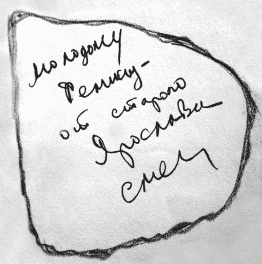 молодому
Феликсу-
от старого
Ярослава